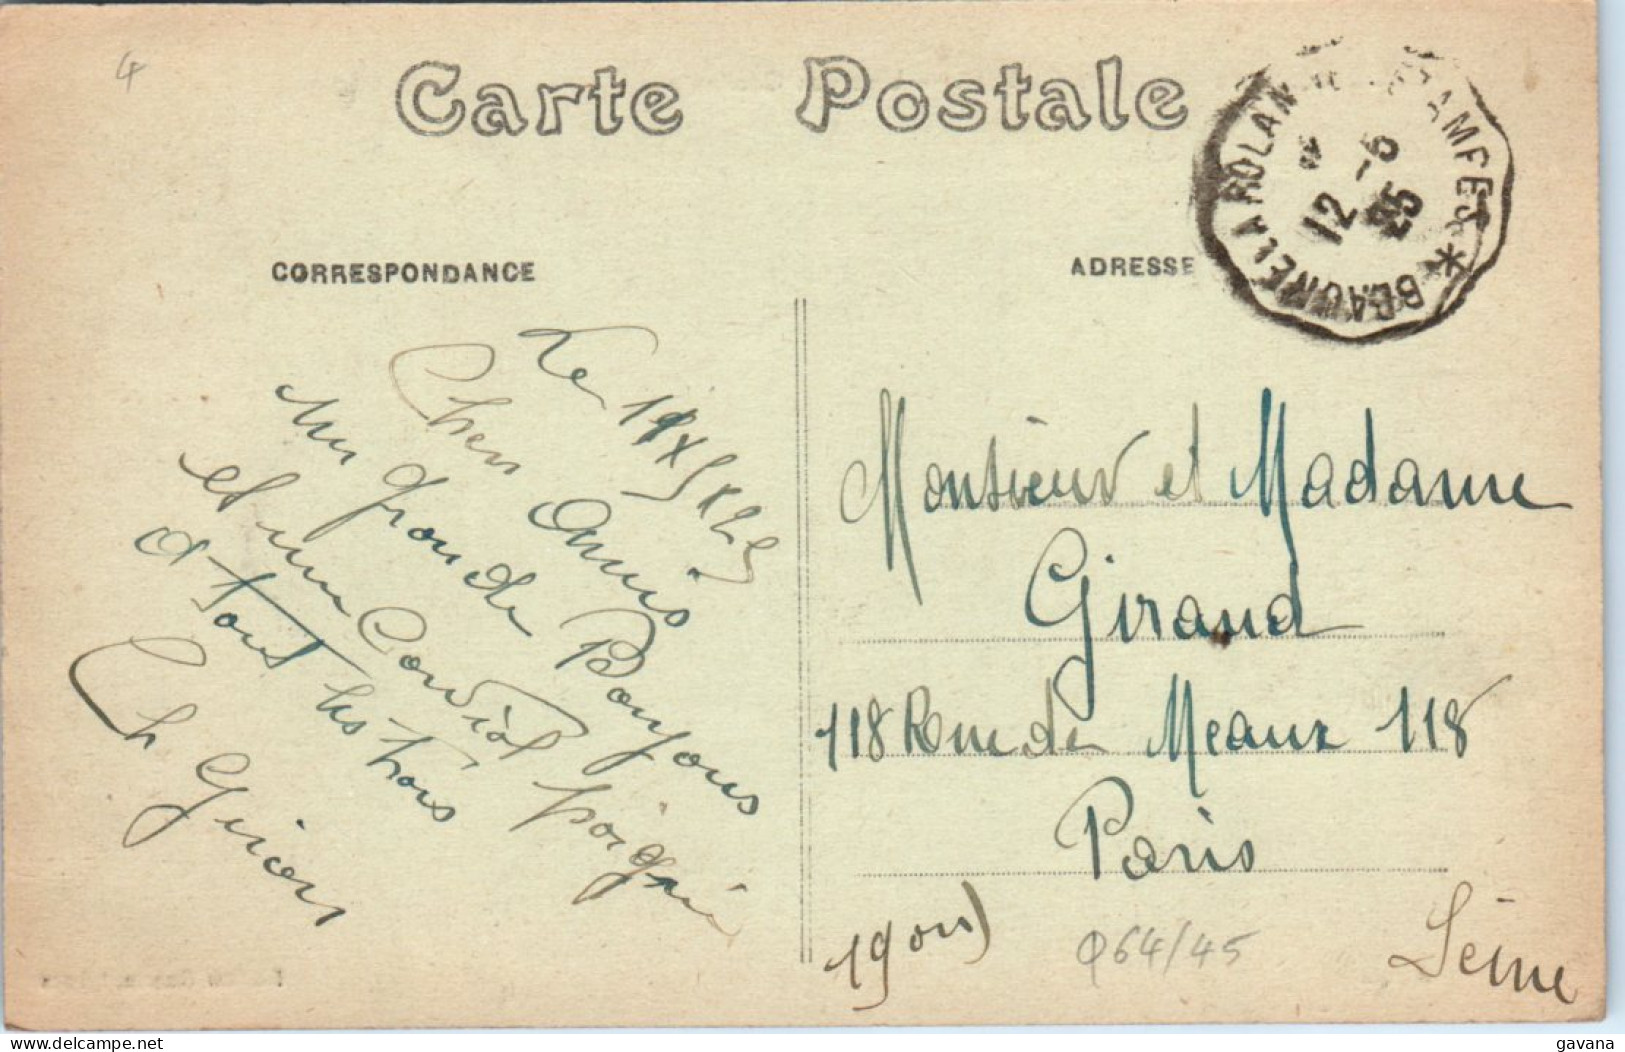 4
Carte Postale
BEAUNE LA ROLAN ETAMPES *
12 -5
25
CORRESPONDANCE
ADRESSE
Le
Chers Amis
un grande Bonjour
et une Cordial poigné
a tous les trois
Ch Girard
Monsieur et Madame
Giraud
118 Rue de Meaux 118
Paris
19
Seine
Q64/45
delcampe.net
gavana